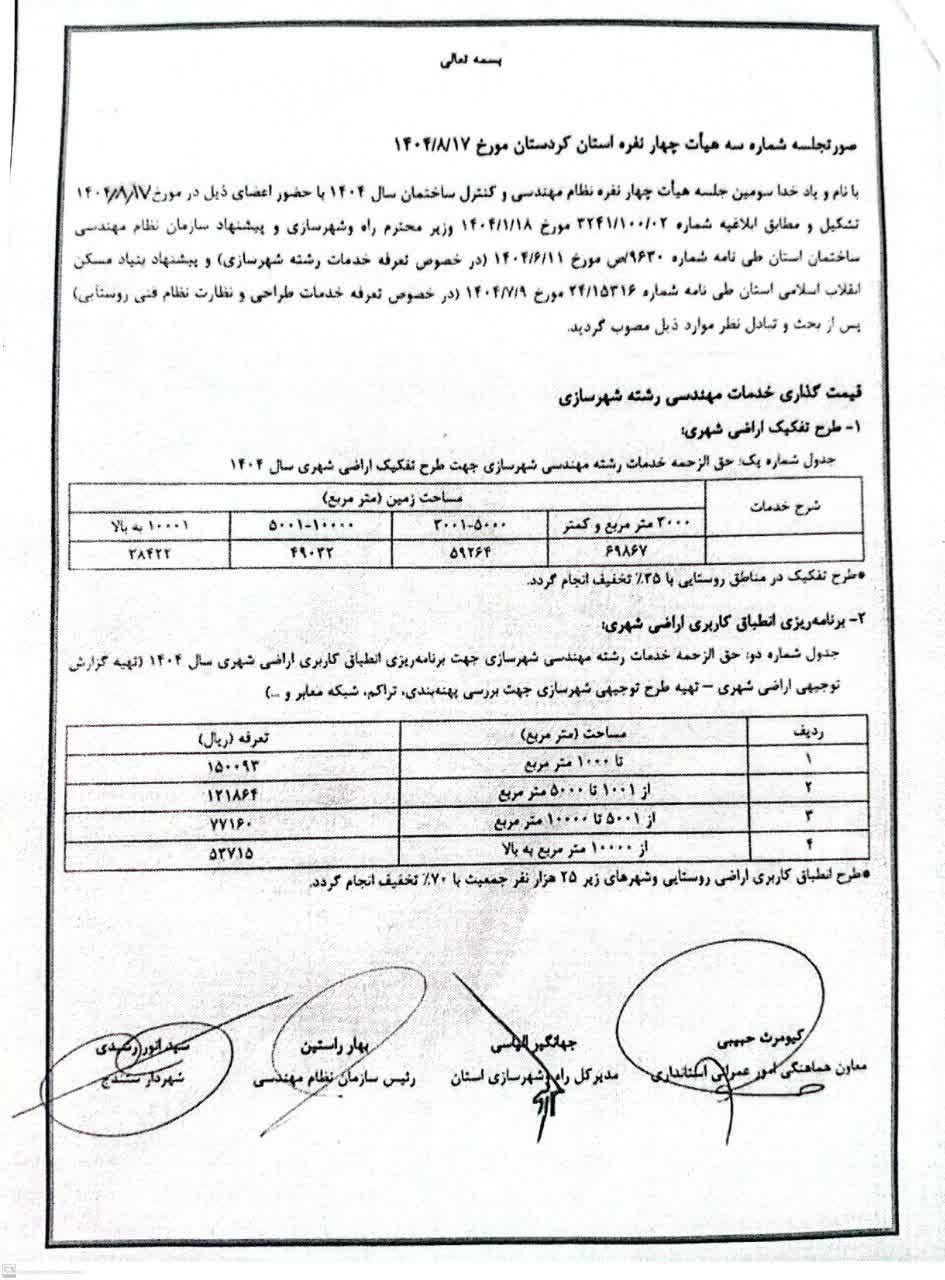 بسمه تعالی
صورتجلسه شماره سه هیأت چهار نفره استان کردستان مورخ ۱۴۰۴/۸/۱۷
با نام و یاد خدا سومین جلسه هیأت چهار نفره نظام مهندسی و کنترل ساختمان سال ۱۴۰۴ با حضور اعضای ذیل در مورخ ۱۴۰۴/۸/۱۷
تشکیل و مطابق ابلاغیه شماره ۳۲۴۱/۱۰۰/۰۲ مورخ ۱۴۰۴/۱/۱۸ وزیر محترم راه وشهرسازی و پیشنهاد سازمان نظام مهندسی
ساختمان استان طی نامه شماره ۹۶۳۰/ص مورخ ۱۴۰۴/۶/۱۱ (در خصوص تعرفه خدمات رشته شهرسازی) و پیشنهاد بنیاد مسکن
انقلاب اسلامی استان طی نامه شماره ۲۴/۱۵۳۱۶ مورخ ۱۴۰۴/۷/۹ (در خصوص تعرفه خدمات طراحی و نظارت نظام فنی روستایی)
پس از بحث و تبادل نظر موارد ذیل مصوب گردید.
قیمت گذاری خدمات مهندسی رشته شهرسازی
۱- طرح تفکیک اراضی شهری:
جدول شماره یک: حق الزحمه خدمات رشته مهندسی شهرسازی جهت طرح تفکیک اراضی شهری سال ۱۴۰۴
شرح خدمات مساحت زمین (متر مربع)
۳۰۰۰ متر مربع و کمتر ۳۰۰۱-۵۰۰۰ ۵۰۰۱-۱۰۰۰۰ ۱۰۰۰۱ به بالا
۶۹۸۶۷ ۵۹۲۶۴ ۴۹۰۳۲ ۳۸۴۲۲
*طرح تفکیک در مناطق روستایی با ۳۵٪ تخفیف انجام گردد.
۲- برنامه‌ریزی انطباق کاربری اراضی شهری:
جدول شماره دو: حق الزحمه خدمات رشته مهندسی شهرسازی جهت برنامه‌ریزی انطباق کاربری اراضی شهری سال ۱۴۰۴ (تهیه گزارش
توجیهی اراضی شهری – تهیه طرح توجیهی شهرسازی جهت بررسی پهنه‌بندی، تراکم، شبکه معابر و ...)
ردیف مساحت (متر مربع) تعرفه (ریال)
۱ تا ۱۰۰۰ متر مربع ۱۵۰۰۹۳
۲ از ۱۰۰۱ تا ۵۰۰۰ متر مربع ۱۲۱۸۶۴
۳ از ۵۰۰۱ تا ۱۰۰۰۰ متر مربع ۷۷۱۶۰
۴ از ۱۰۰۰۰ متر مربع به بالا ۵۳۷۱۵
*طرح انطباق کاربری اراضی روستایی وشهرهای زیر ۲۵ هزار نفر جمعیت با ۷۰٪ تخفیف انجام گردد.
کیومرث حبیبی جهانگیر الیاسی بهار راستین سید انور رشیدی
معاون هماهنگی امور عمرانی استانداری مدیرکل راه وشهرسازی استان رئیس سازمان نظام مهندسی شهردار سنندج
CS